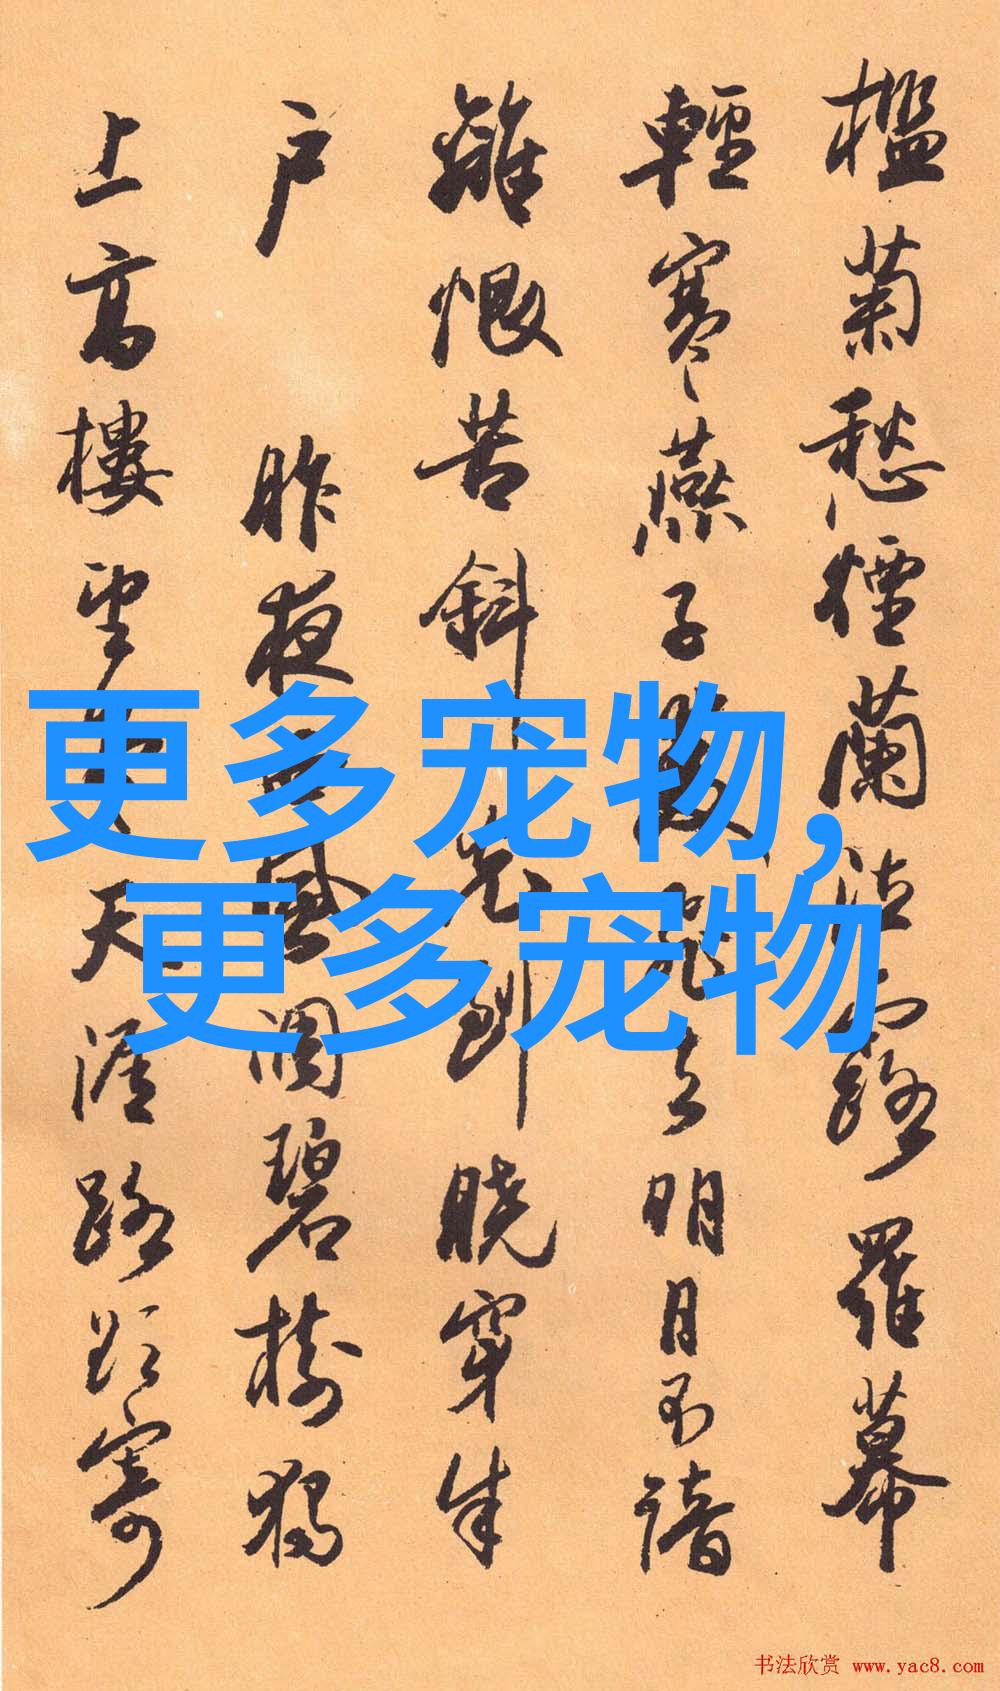 檻菊愁煙蘭泣露羅幕
輕寒燕子雙飛去明月不諳
離恨苦斜光到曉穿朱
户 昨夜西風凋碧樹獨
上高樓望盡天涯路欲寄
更多宠物,
更多宠物
书法欣赏 www.yac8.com